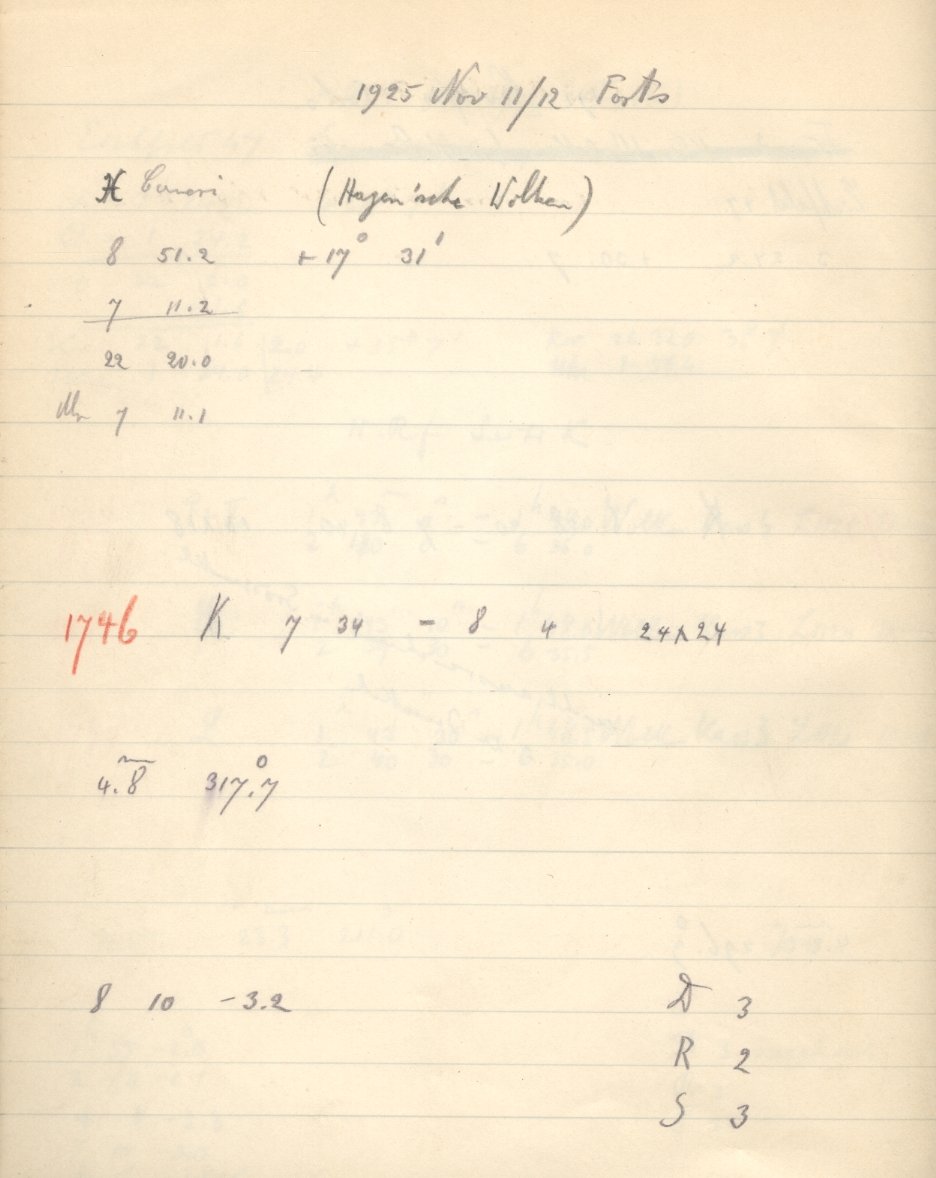 1925 Nov 11/12 Forts
(Hagen'sche Wolken)
8 51.2 +17° 31'
7 11.2
22 20.0
7 11.1
1746 K 7 34 - 8 4 24x24
4.8 317.7°
8 10 -3.2 D 3
R 2
S 3